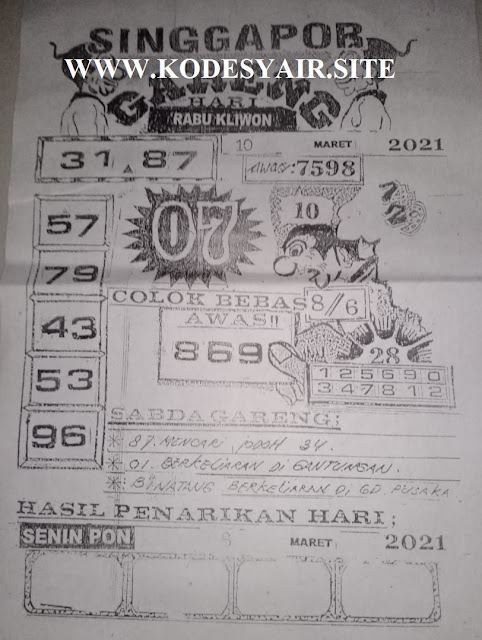 SINGGAPOR
WWW.KODESYAIR.SITE
GARENG
HARI
RABU KLIWON
10 MARET 2021
31 87
AWAS:7598
57
07
10
79
COLOK BEBAS 8/6
AWAS!!
43
869
28
125690
347812
53
96
SABDA GARENG;
* 87. MENCARI 34.
* 01. BERKELIARAN Di GANTUNGAN.
* BiNATANG BERKELIARAN Di GD. PUSAKA
HASIL PENARIKAN HARI;
SENIN PON 9 MARET 2021